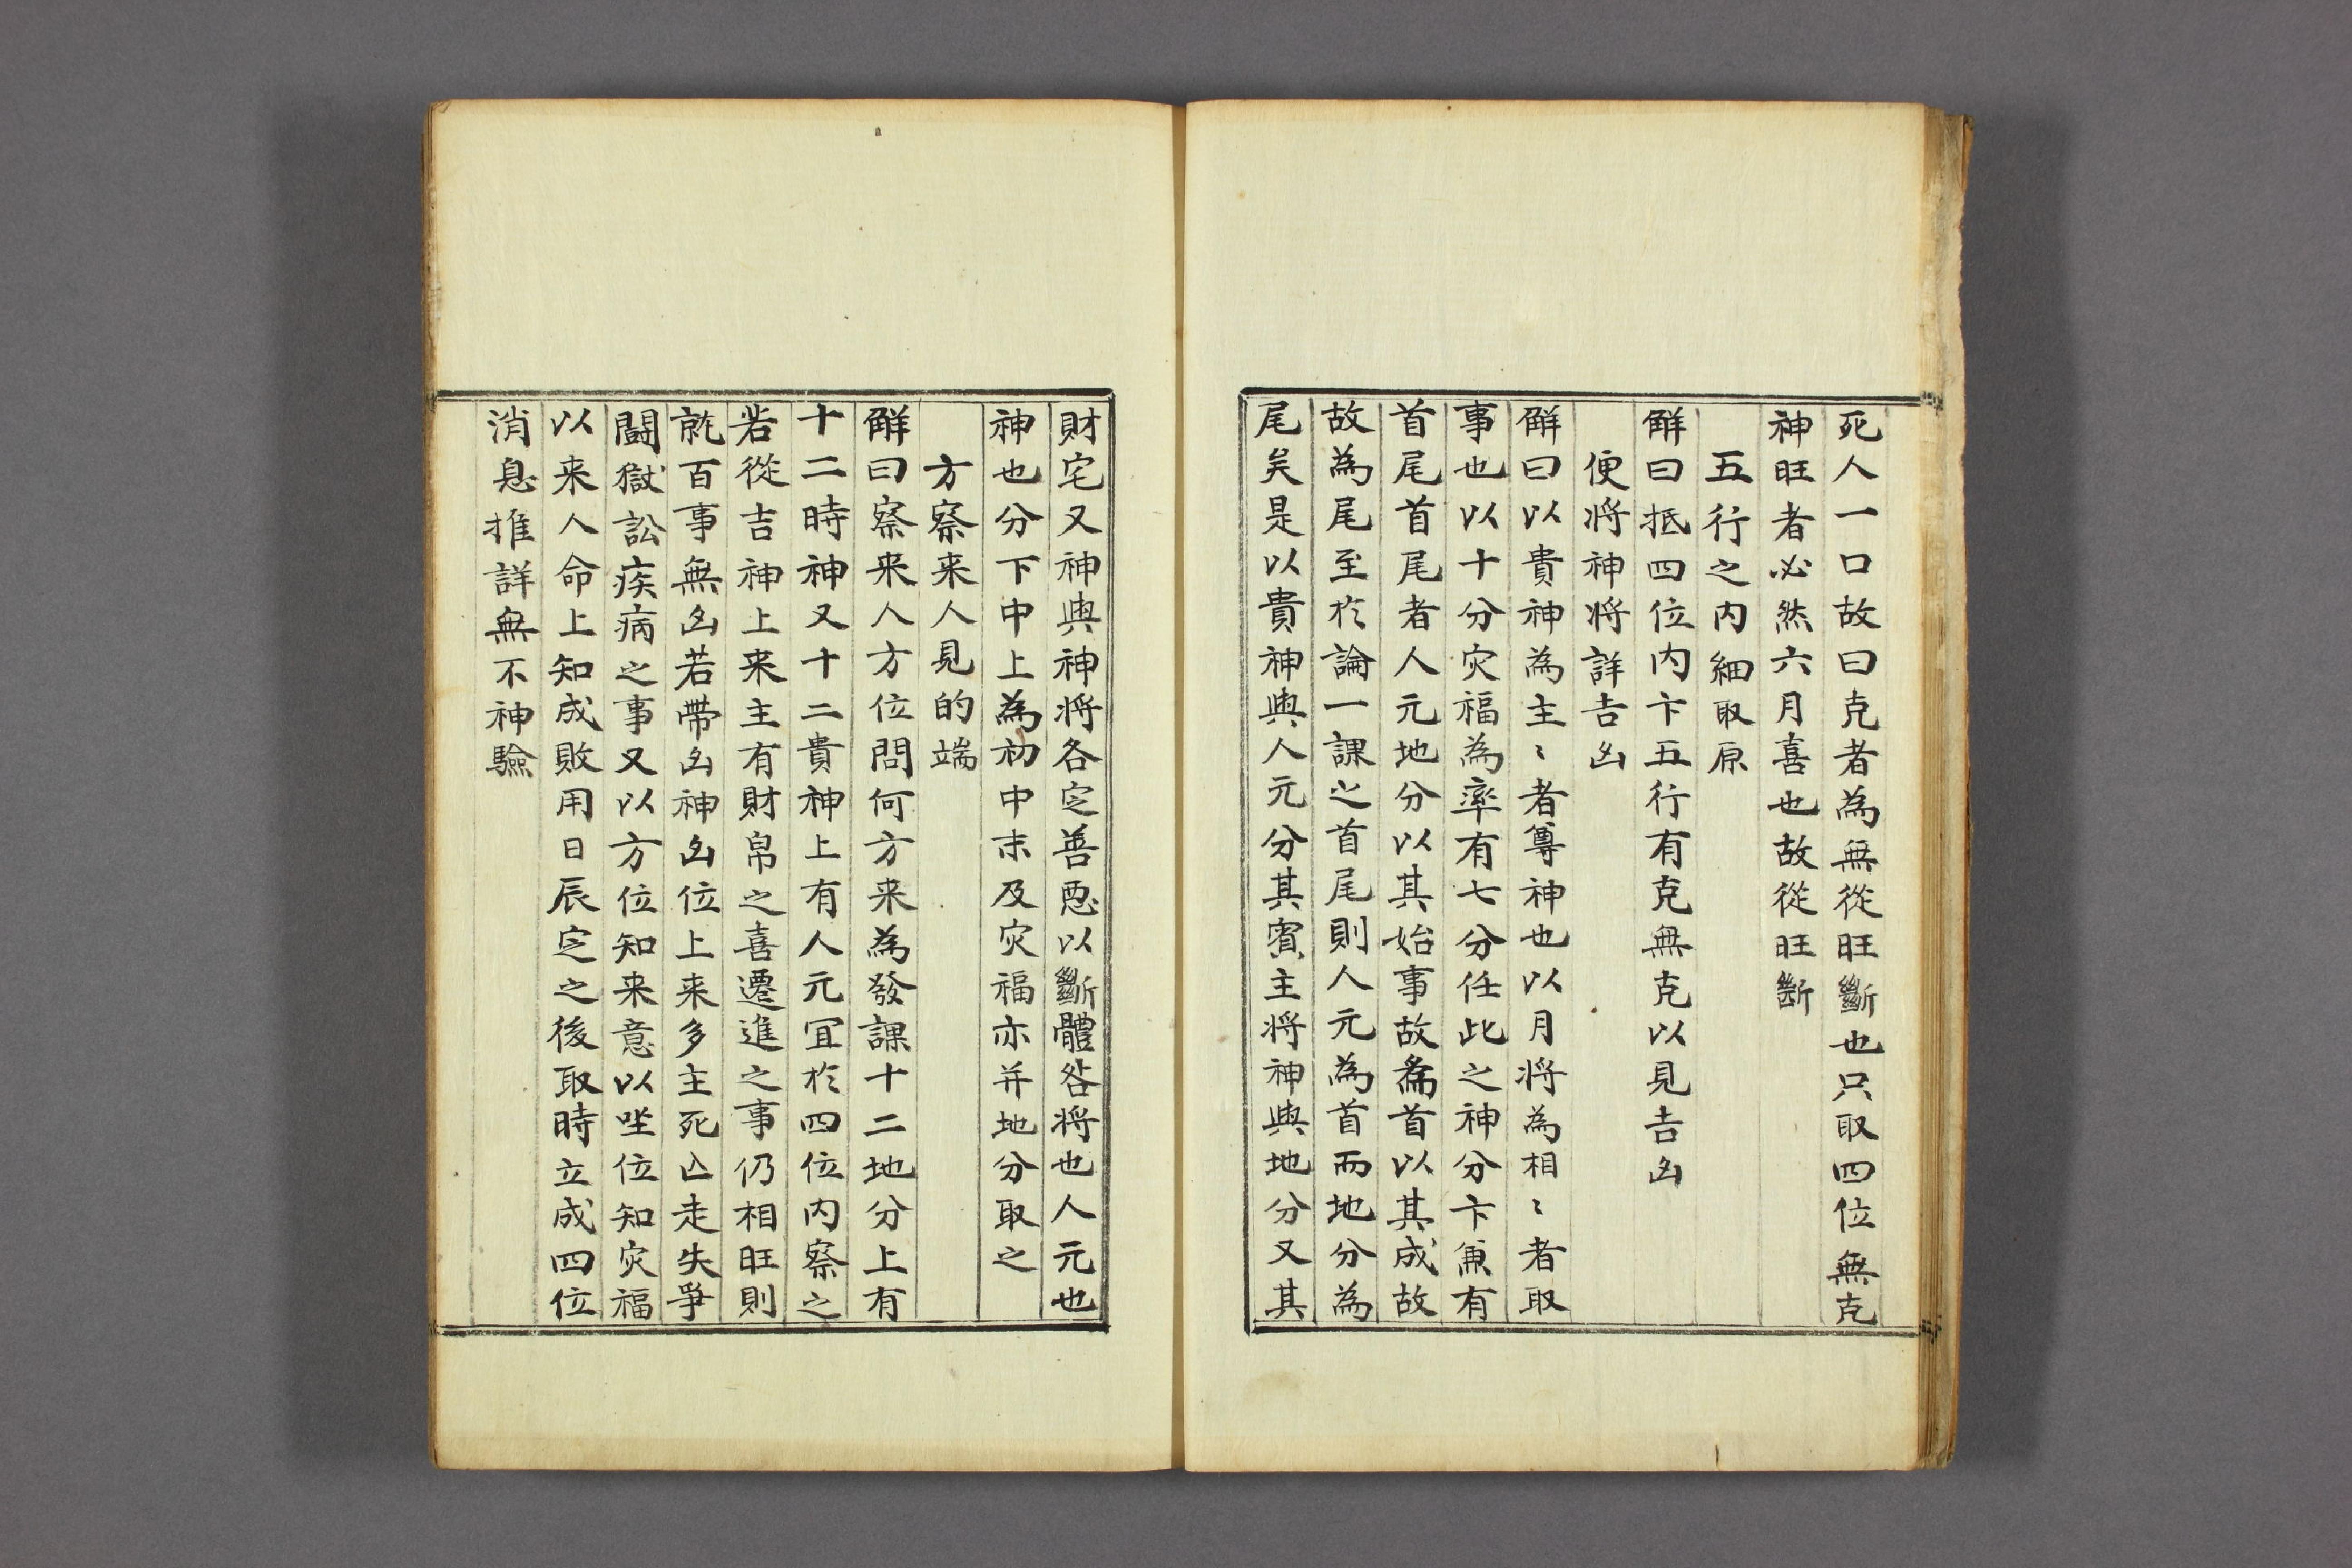 死人一口故曰克者為無從旺斷也只取四位無克
神旺者必然六月喜也故從旺斷
五行之内細取原
解曰抵四位内卞五行有克無克以見吉凶
便将神将詳吉凶
解曰以貴神為主〻者尊神也以月将為相〻者取
事也以十分灾福為率有七分任此之神分卞兼有
首尾首尾者人元地分以其始事故為首以其成故
故為尾至於論一課之首尾則人元為首而地分為
尾矣是以貴神與人元分其賓主将神與地分又其
財宅又神與神将各定善悪以斷體咎将也人元也
神也分下中上為初中末及灾福亦并地分取之
方察来人見的端
解曰察来人方位問何方来為發課十二地分上有
十二時神又十二貴神上有人元宜於四位内察之
若從吉神上来主有財帛之喜遷進之事仍相旺則
就百事無凶若帶凶神凶位上来多主死亡走失爭
鬪獄訟疾病之事又以方位知来意以坐位知灾福
以来人命上知成敗用日辰定之後取時立成四位
消息推詳無不神驗